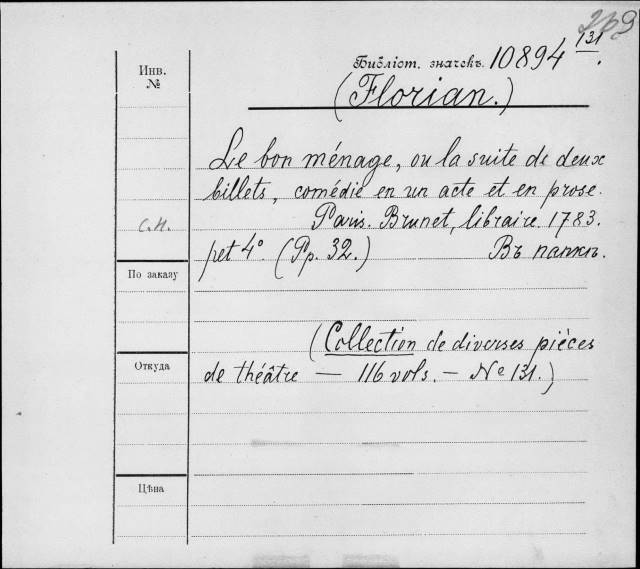 269
Инв.
№
Библіот. значекъ. 10894 131.
(Florian.)
Le bon ménage, ou la suite de deux
billets, comédie en un acte et en prose.
С.П.
Paris. Brunet, libraire. 1783.
pet 4°. (Pp. 32.) Въ папкѣ.
По заказу
(Collection de diverses pièces
Откуда
de théâtre — 116 vols. — № 131.)
Цѣна